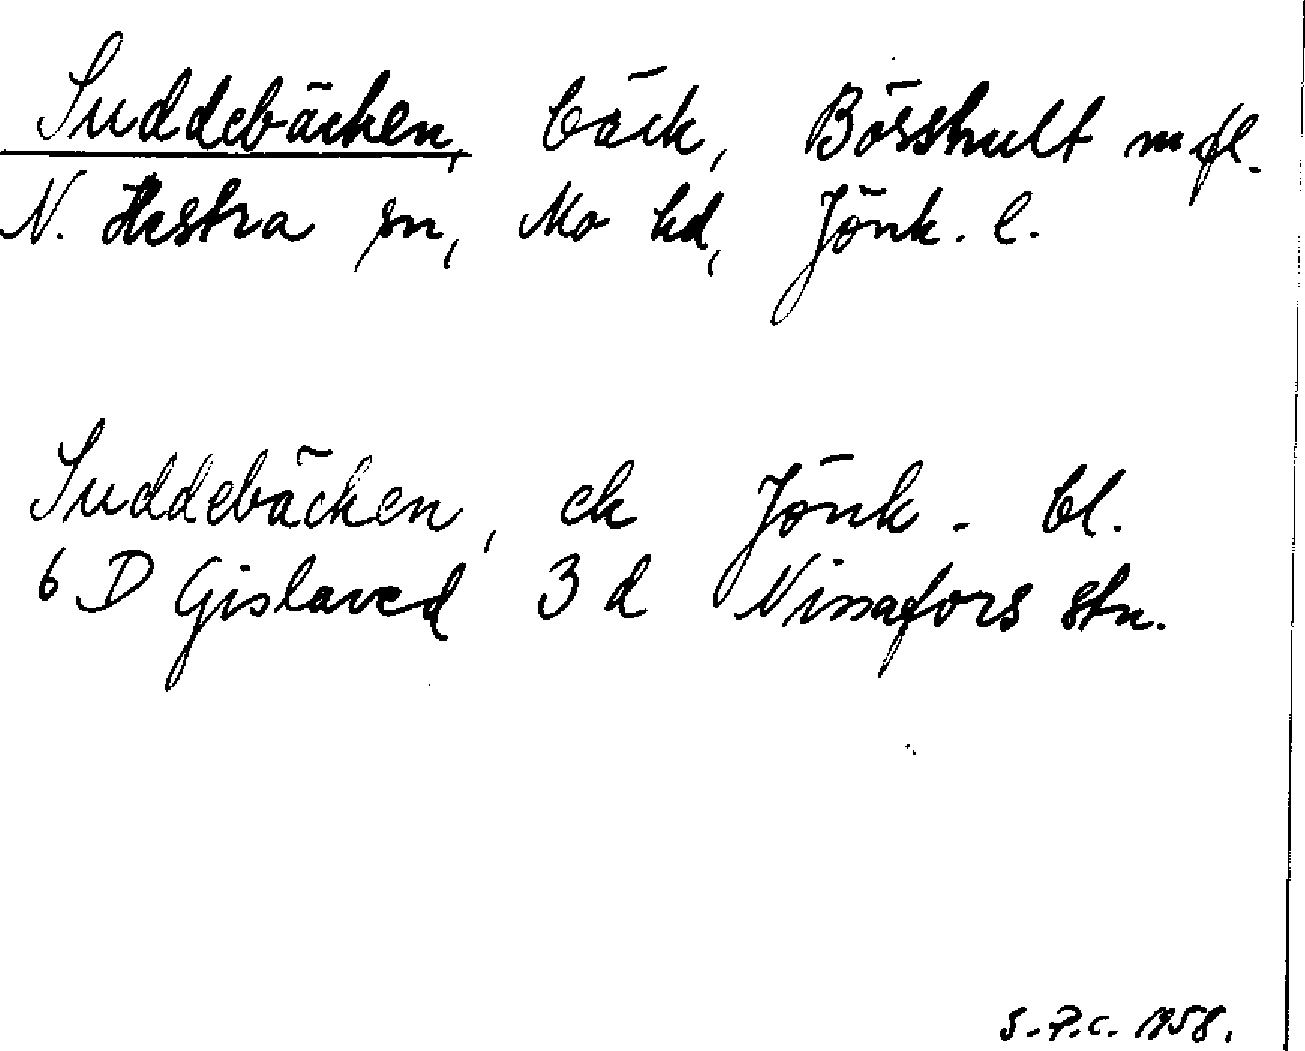 Suddebäcken, bäck, Bösshult m fl.
N. Hestra sn, Mo hd, Jönk. l.
Suddebäcken, ek Jönk. bl.
6 D Gislaved 3 d Nissafors stn.
S.P.C. 1958.